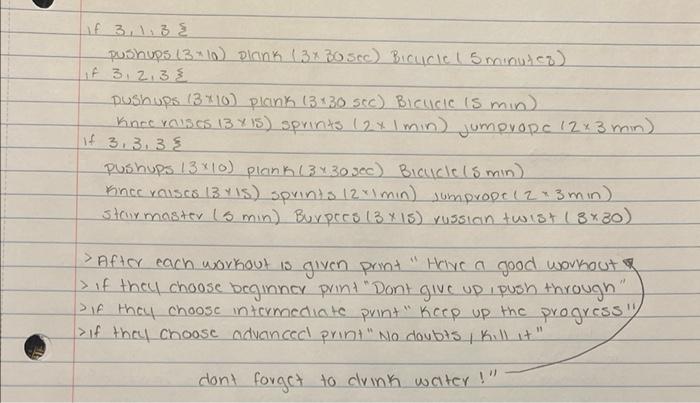 if 3,1,3 {
pushups (3x10) plank (3x30sec) Bicycle (5minutes)
if 3,2,3 {
pushups (3x10) plank (3x30 sec) Bicycle (5 min)
Knee raises (3x15) sprints (2x1min) jumprope (2x3min)
if 3,3,3 {
pushups (3x10) plank (3x30sec) Bicycle (5 min)
Knee raises (3x15) sprints (2x1min) jumprope (2x3min)
Stairmaster (5 min) Burpees (3x15) russian twist (3x30)
> After each workout is given print "Have a good workout
> if they choose beginner print "Dont give up, push through"
> if they choose intermediate print "Keep up the progress"
> if they choose advanced print "No doubts, Kill it"
dont forget to drink water!"